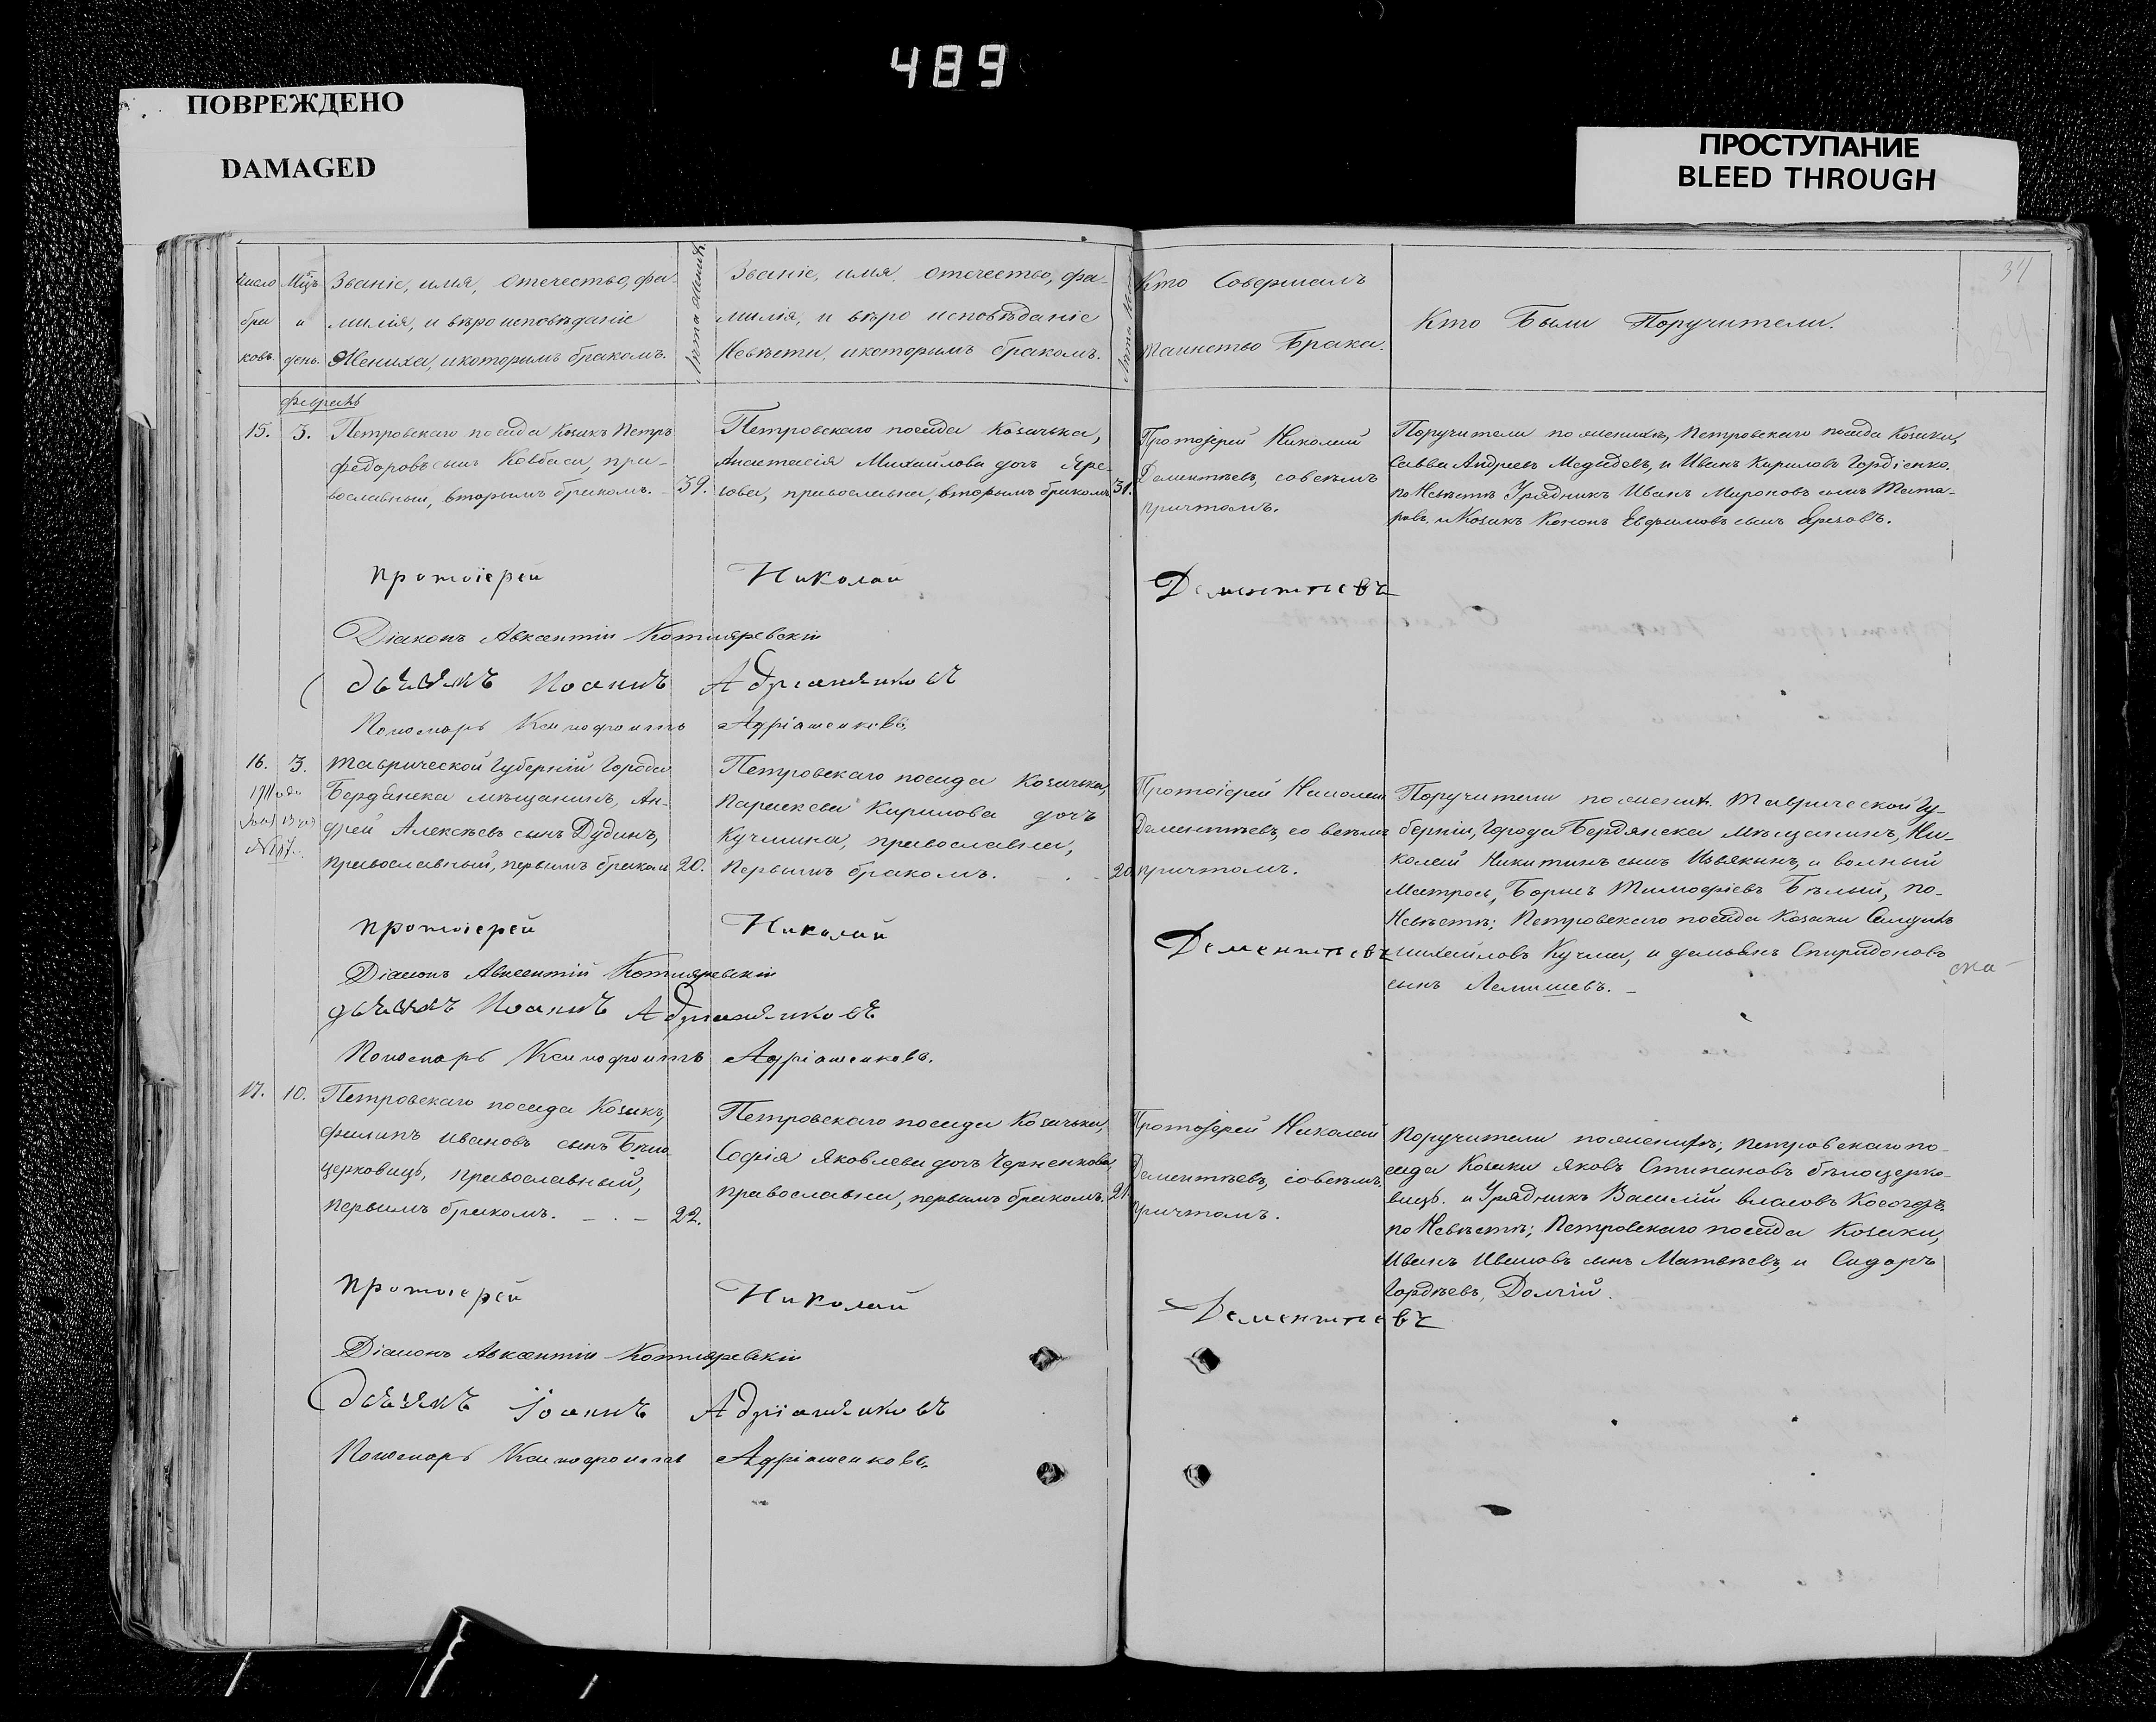 489
ПОВРЕЖДЕНО
DAMAGED
ПРОСТУПАНИЕ
BLEED THROUGH
Число браковъ.
Мцъ и день.
Званіе, имя, отечество, фа-
милія, и вѣроисповѣданіе
Жениха, и которымъ бракомъ.
Лѣта жениха
Званіе, имя, отечество, фа-
милія, и вѣроисповѣданіе
Невѣсты, и которымъ бракомъ.
Кто Совершалъ
Таинство Брака.
Кто Были Поручители.
Февраль
15. 3. Петровскаго посада Козакъ Петръ
Федоровъ сынъ Ковбаса, пра-
вославный, вторымъ бракомъ. 39.
Петровскаго посада Козачька,
Анастасія Михайлова дочь Яре-
зова, православна, вторымъ бракомъ 31.
Протоіерей Николай
Дементѣевъ, совсѣмъ
причтомъ.
Поручители по женихѣ, Петровскаго посада Козаки,
Савва Андреевъ Медидовъ, и Иванъ Кириловъ Гордіенко.
по Невѣстѣ Урядникъ Иванъ Мироновъ сынъ Тата-
ровъ, и Козакъ Кононъ Евфимовъ сынъ Ярезовъ.
Протоіерей Николай Дементѣевъ
Діаконъ Авксентій Котляревскій
Дьячекъ Иоаннъ Адріашенковъ
Пономарь Ксенофонтъ Адріашенковъ.
16. 3. Таврической Губерніи Города
Бердянска мѣщанинъ, Ан-
дрей Алексѣевъ сынъ Дудинъ,
православный, первымъ бракомъ 20.
Петровскаго посада Козачька,
Параскева Кирилова дочь
Кучмина, православна,
первымъ бракомъ. 20
Протоіерей Николай
Дементѣевъ, со всѣмъ
причтомъ.
Поручители по жених. Таврической Гу-
берніи, Города Бердянска мѣщанинъ, Ни-
колай Никитинъ сынъ Извякинъ, и волный
Матросъ, Борисъ Тимофіевъ Бѣлый, по-
Невѣстѣ; Петровскаго посада Козаки
Михайловъ Кучма, и Демьянъ Спиридоновъ
сынъ Лемишевъ.
Протоіерей Николай Дементѣевъ
Діаконъ Авксентій Котляревскій
Дьячекъ Иоаннъ Адріашенковъ
Пономарь Ксенофонтъ Адріашенковъ.
17. 10. Петровскаго посада Козакъ,
Филипъ Ивановъ сынъ Бѣло-
церковецъ, православный,
первымъ бракомъ. 22.
Петровскаго посада Козачька,
Софія Яковлева дочь Черненкова,
православна, первымъ бракомъ. 21.
Протоіерей Николай
Дементѣевъ, совсѣмъ
причтомъ.
Поручители по женихѣ; Петровскаго по-
сада Козаки Яковъ Стипановъ бѣлоцерко-
вецъ. и Урядникъ Василій Власовъ Косогоръ.
по Невѣстѣ; Петровскаго посада Козаки,
Иванъ Ивановъ сынъ Матвѣевъ, и Сидоръ
Гордѣевъ, Долгій.
Протоіерей Николай Дементѣевъ
Діаконъ Авксентій Котляревскій
Дьячекъ Іоаннъ Адріашенковъ
Пономарь Ксенофонтъ Адріашенковъ.